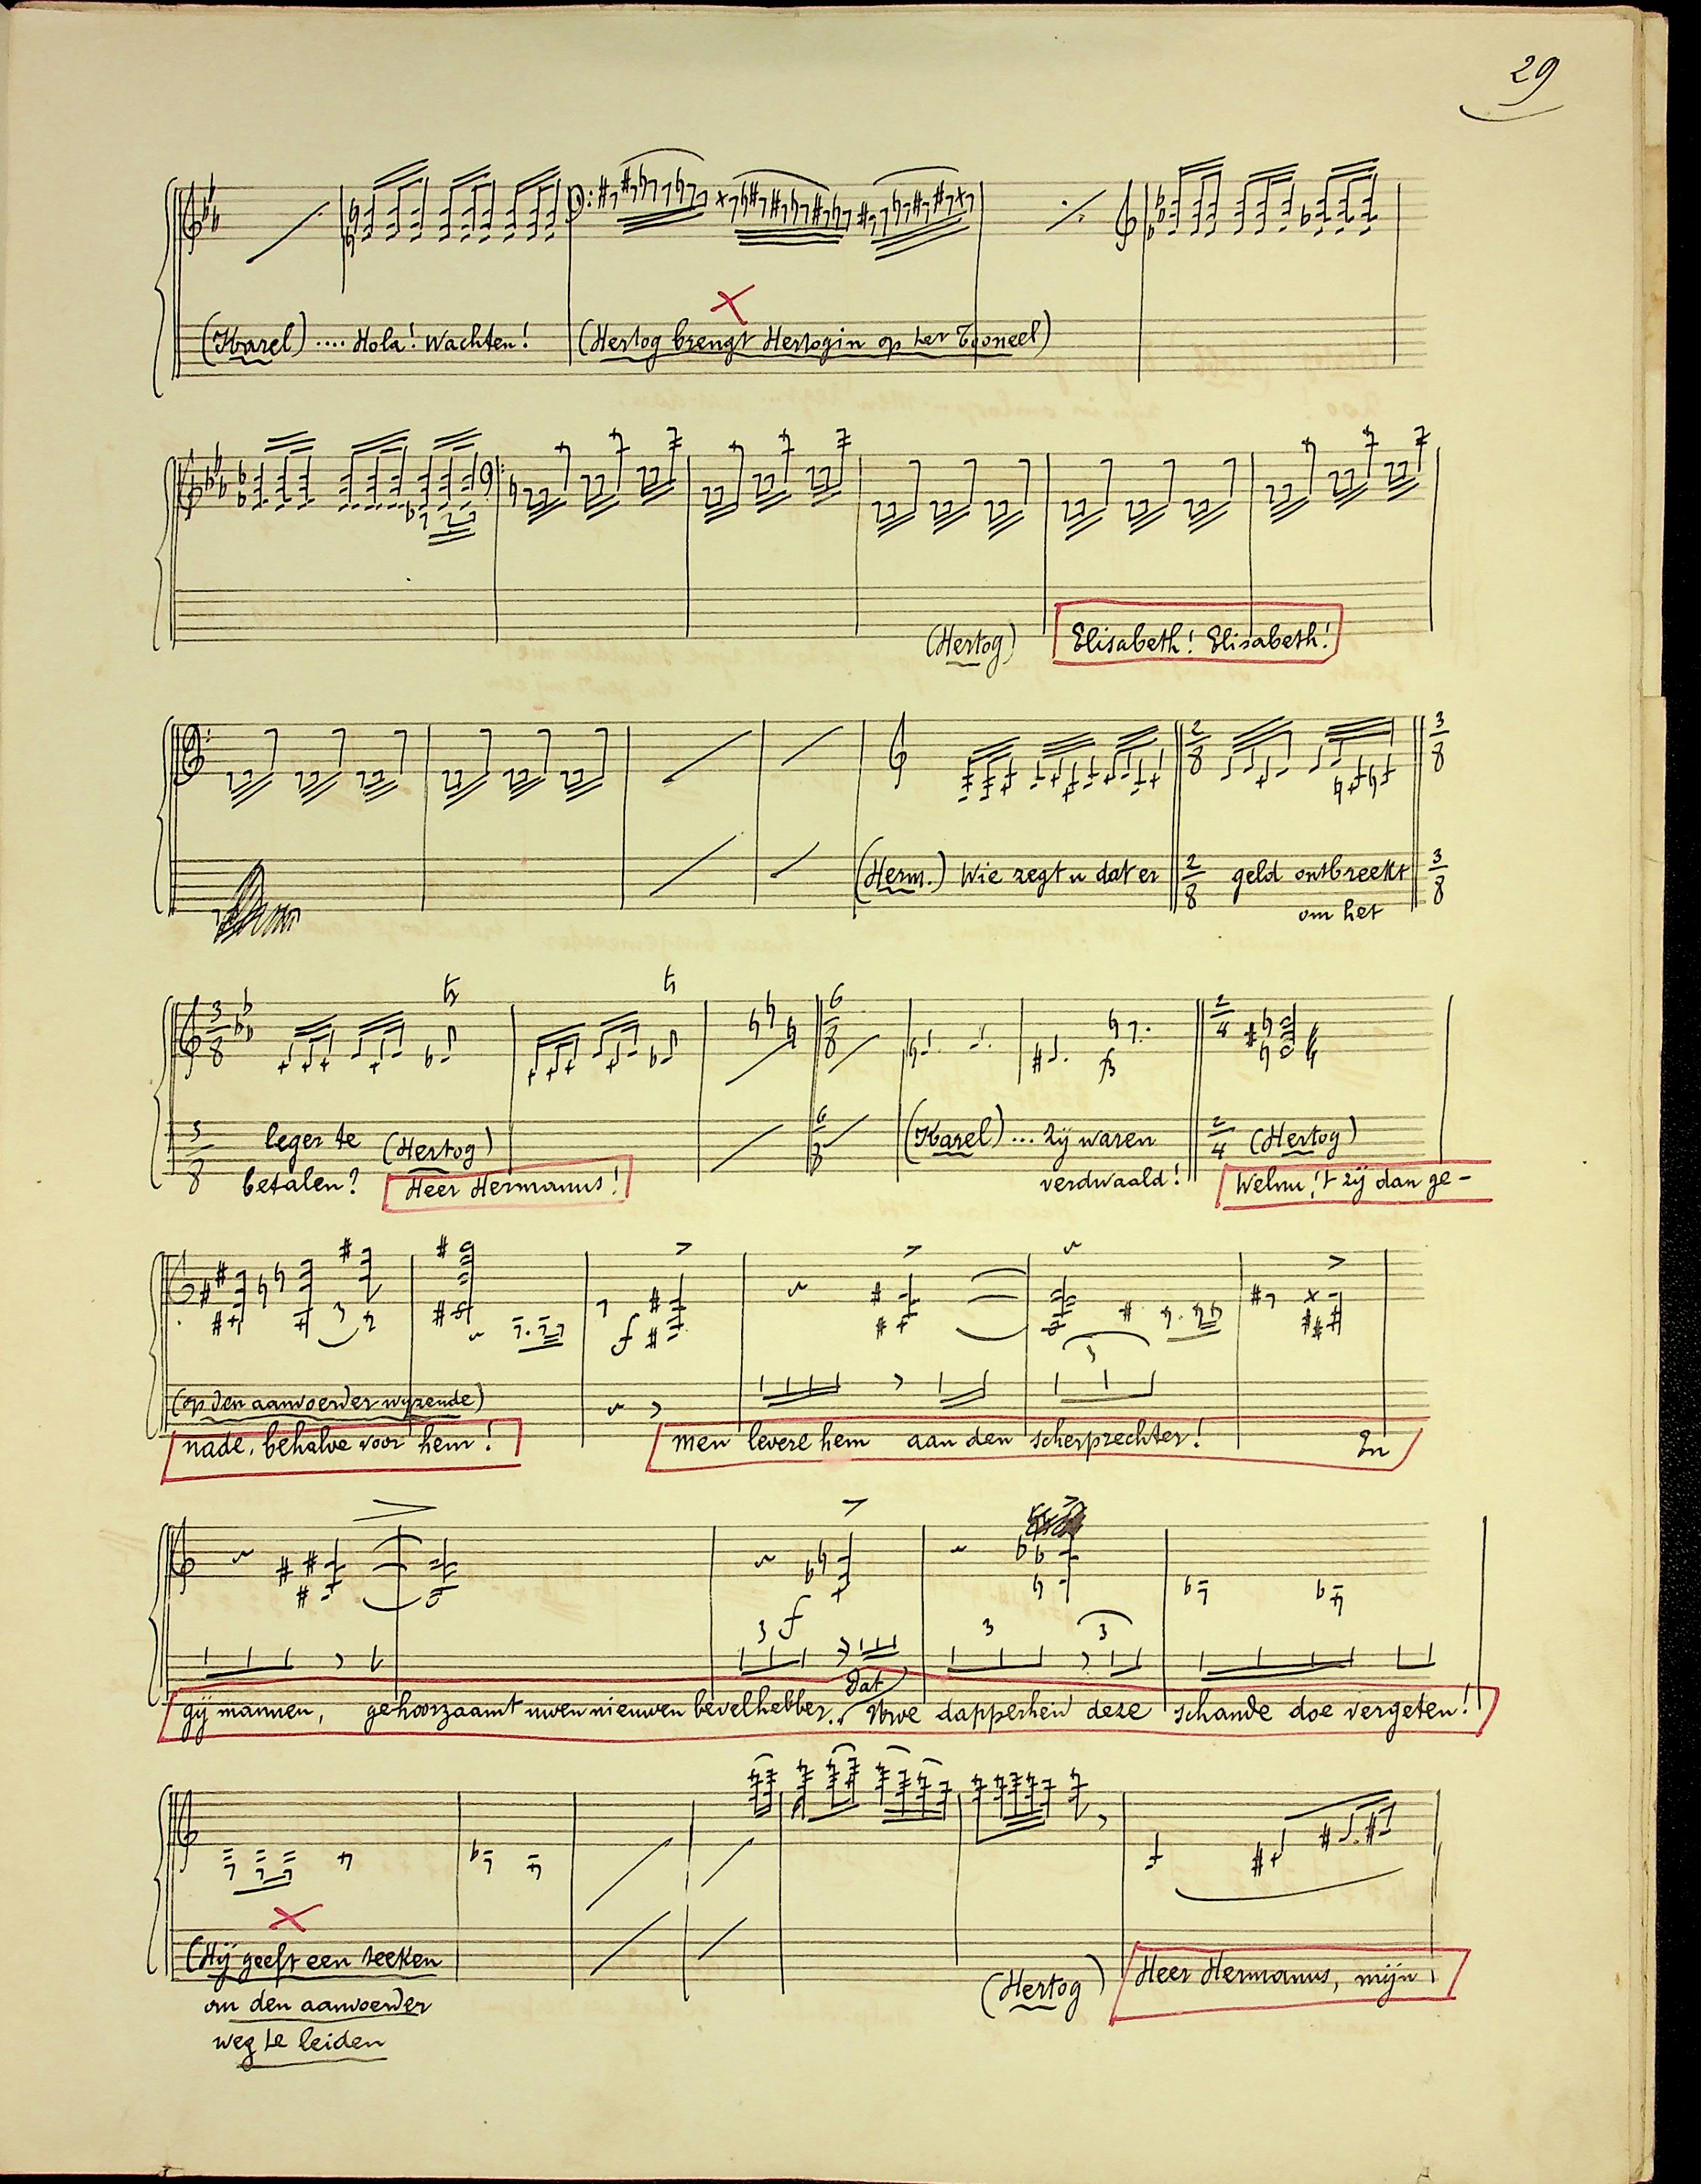 29
(Karel) .... Hola! Wachten! (Hertog brengt Hertogin op het Tooneel)
(Hertog) Elisabeth! Elisabeth!
(Herm.) Wie zegt u dat er 2/8 geld ontbreekt 3/8
om het
3/8 leger te (Hertog) 6/8 (Karel) ... zij waren 2/4 (Hertog)
betalen? Heer Hermanus! verdwaald! Welnu, 't zij dan ge-
(op den aanvoerder wijzende)
nade, behalve voor hem! men levere hem aan den scherprechter! En
Dat
gij mannen, gehoorzaamt uwen nieuwen bevelhebber.. Uwe dapperheid deze schande doe vergeten!
(Hij geeft een teeken
om den aanvoerder
weg te leiden
(Hertog) Heer Hermanus, mijn